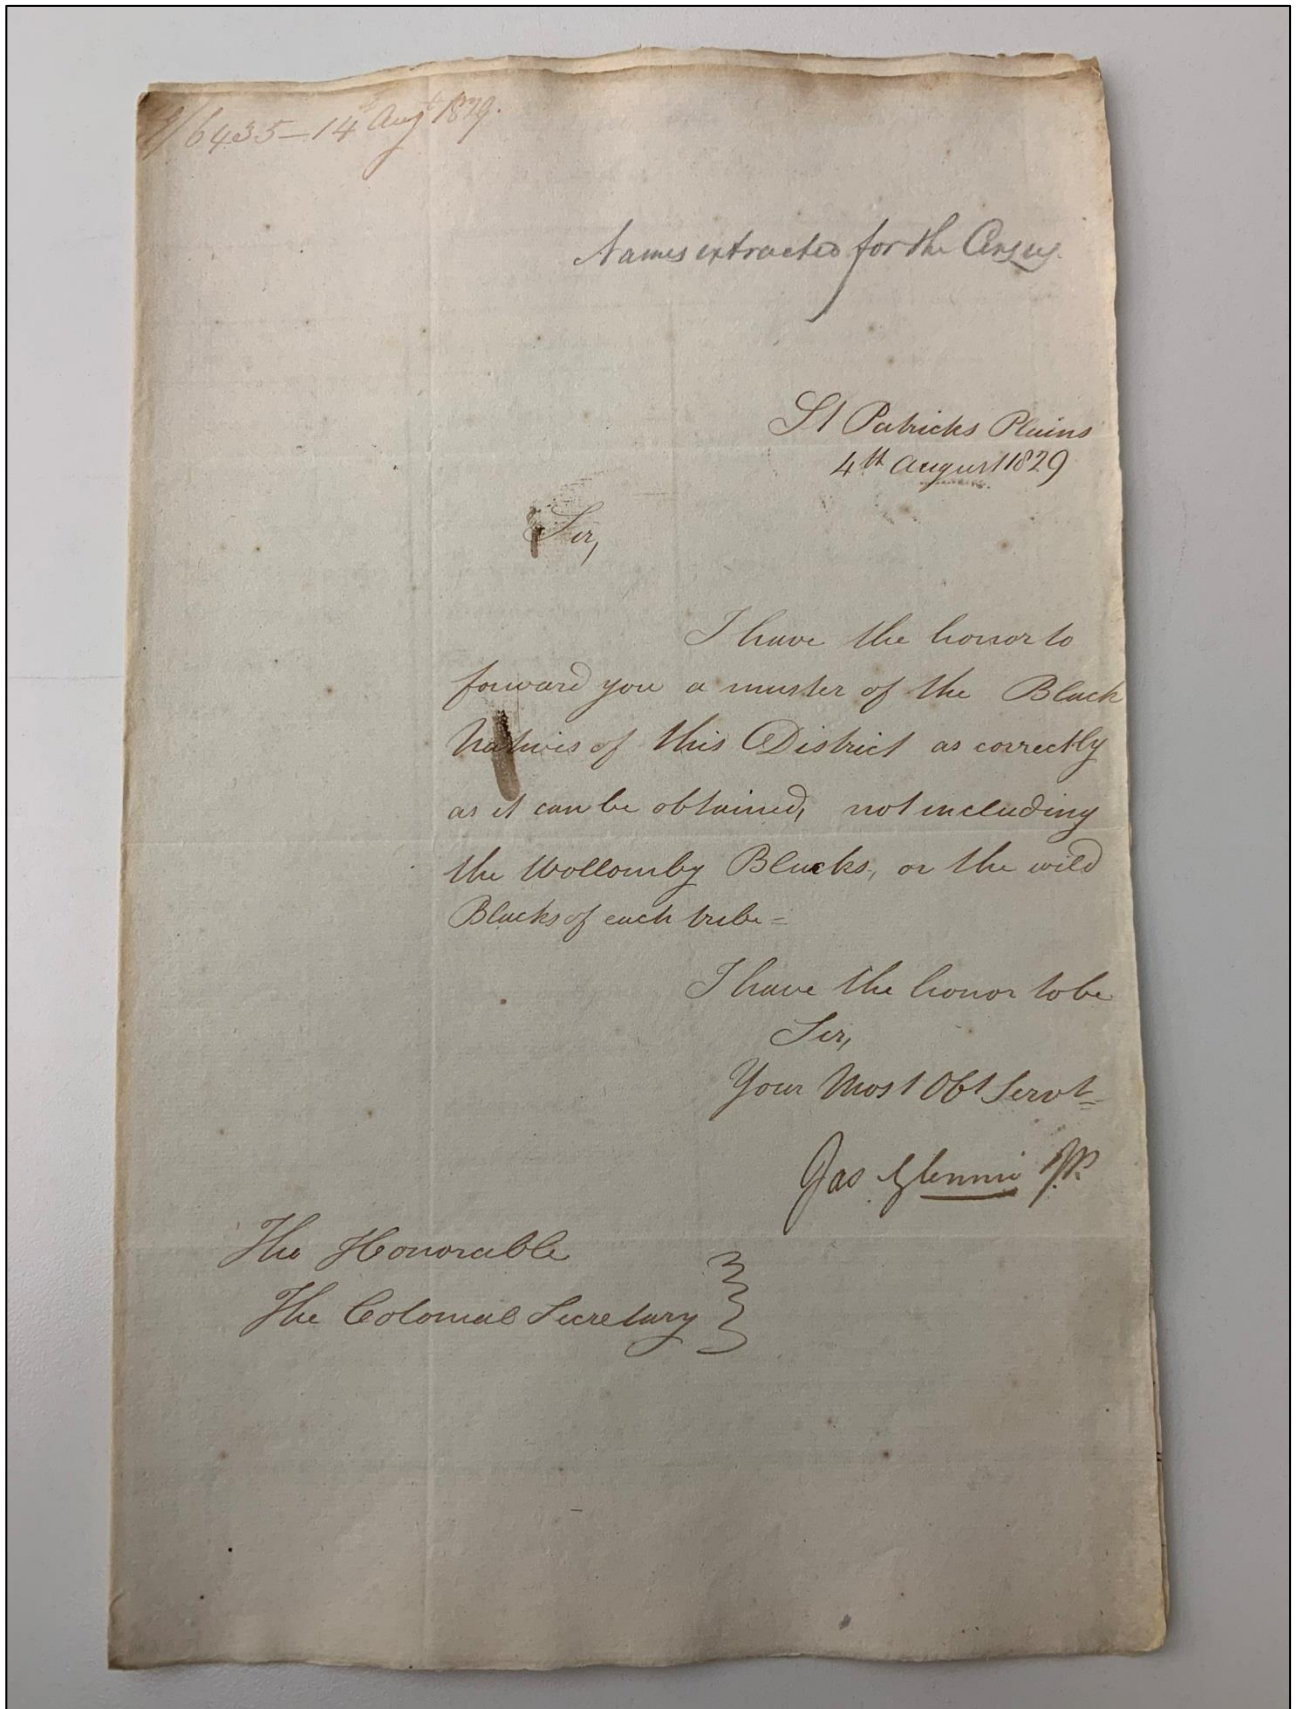 /6435 - 14 Augt 1829.
Names extracted for the Census.
St Patricks Plains
4th August 1829
Sir,
I have the honor to
forward you a muster of the Black
Natives of this District as correctly
as it can be obtained, not including
the Wollomby Blacks, or the wild
Blacks of each tribe =
I have the honor to be
Sir,
Your Most Obt Servt =
Jas Glennie JP.
The Honorable
The Colonial Secretary